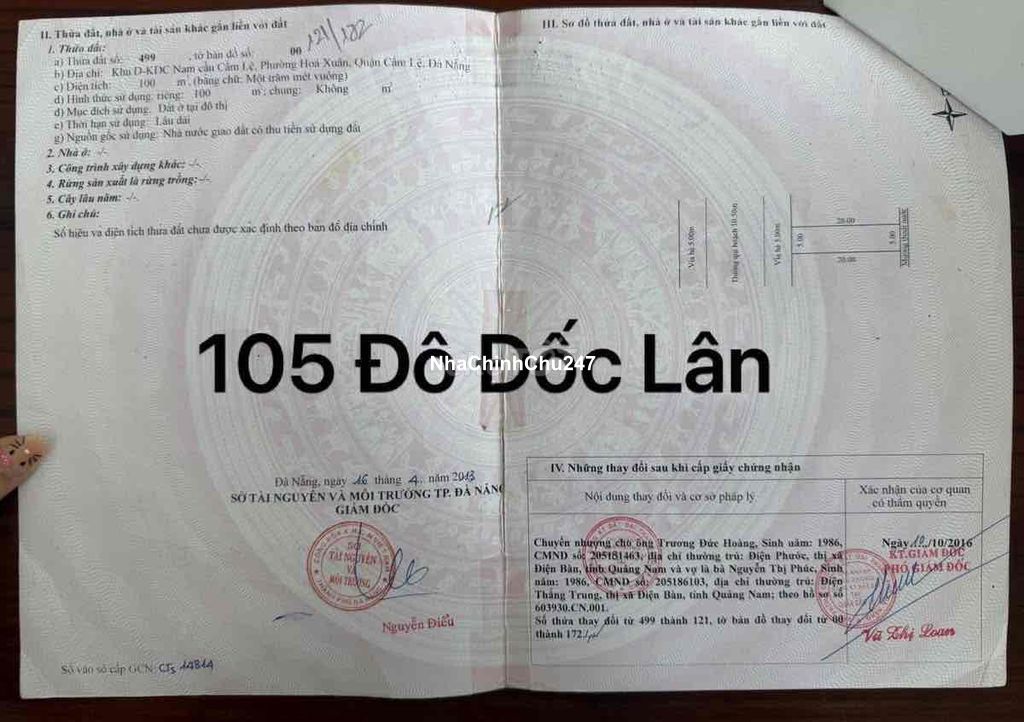 II. Thửa đất, nhà ở và tài sản khác gắn liền với đất
1. Thửa đất:
a) Thửa đất số: 499 , tờ bản đồ số: 00 121/182
b) Địa chỉ: Khu D-KDC Nam cầu Cẩm Lệ, Phường Hoà Xuân, Quận Cẩm Lệ, Đà Nẵng
c) Diện tích: 100 m², (bằng chữ: Một trăm mét vuông)
d) Hình thức sử dụng: riêng: 100 m²; chung: Không m²
đ) Mục đích sử dụng: Đất ở tại đô thị
e) Thời hạn sử dụng: Lâu dài
g) Nguồn gốc sử dụng: Nhà nước giao đất có thu tiền sử dụng đất
2. Nhà ở: -/-
3. Công trình xây dựng khác: -/-
4. Rừng sản xuất là rừng trồng:-/-
5. Cây lâu năm: -/-
6. Ghi chú:
Số hiệu và diện tích thửa đất chưa được xác định theo bản đồ địa chính
III. Sơ đồ thửa đất, nhà ở và tài sản khác gắn liền với đất
Vỉa hè 5.00m
Đường qui hoạch 10.50m
Vỉa hè 5.00m
20.00
5.00
5.00
20.00
Mương thoát nước
105 Đô Đốc Lân
NhaChinhChu247
Đà Nẵng, ngày 16 tháng 4. năm 2013
SỞ TÀI NGUYÊN VÀ MÔI TRƯỜNG TP. ĐÀ NẴNG
GIÁM ĐỐC
SỞ
TÀI NGUYÊN
VÀ
MÔI TRƯỜNG
Nguyễn Điểu
Số vào sổ cấp GCN: CTs 14814
IV. Những thay đổi sau khi cấp giấy chứng nhận
Nội dung thay đổi và cơ sở pháp lý
Xác nhận của cơ quan
có thẩm quyền
Chuyển nhượng cho ông Trương Đức Hoàng, Sinh năm: 1986,
CMND số: 205181463, địa chỉ thường trú: Điện Phước, thị xã
Điện Bàn, tỉnh Quảng Nam và vợ là bà Nguyễn Thị Phúc, Sinh
năm: 1986, CMND số: 205186103, địa chỉ thường trú: Điện
Thắng Trung, thị xã Điện Bàn, tỉnh Quảng Nam; theo hồ sơ số
603930.CN.001.
Số thửa thay đổi từ 499 thành 121, tờ bản đồ thay đổi từ 00
thành 172
Ngày 12./10/2016
KT.GIÁM ĐỐC
PHÓ GIÁM ĐỐC
Vũ Thị Loan